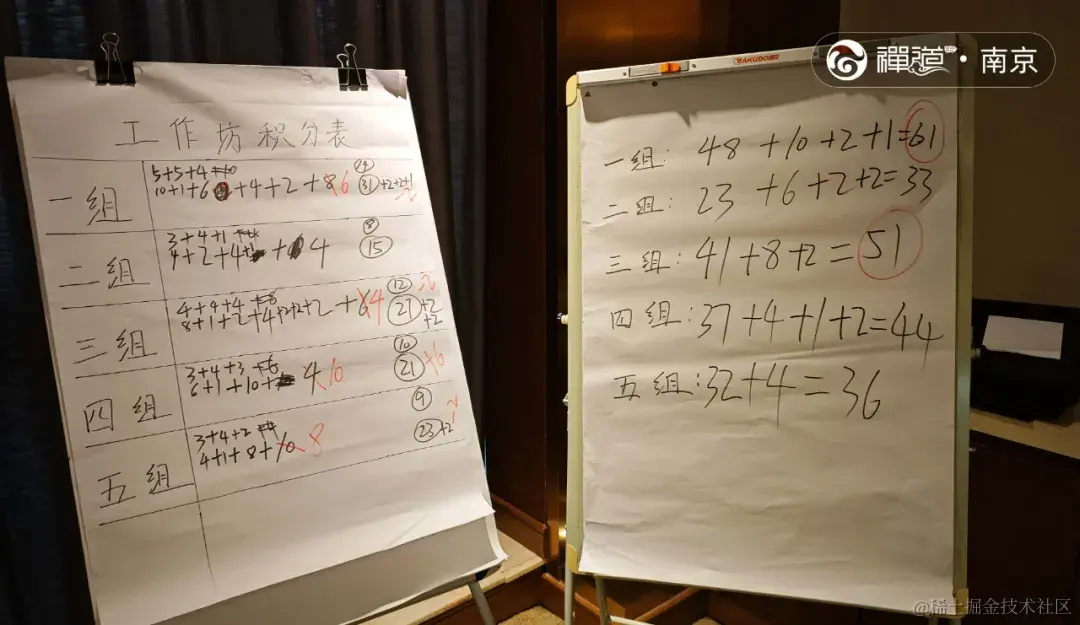 禅道·南京
工作坊积分表
一组
5+5+4
10+1+6 +4+2+8 6
14
31 +2+2+1
二组
3+4+1
4+2+4 + 4
8
15
三组
4+4+4 +8
8+1+2+4+2+2+2+6 4
12
27 +2 +2
四组
3+4+3 +6
6+1+10+ 4 10
10
21
五组
3+4+2
4+1+8+10 8
9
23 +2
ZAKUDO
一组: 48+10+2+1=61
二组: 23+6+2+2=33
三组: 41+8+2=51
四组: 37+4+1+2=44
五组: 32+4=36
@稀土掘金技术社区